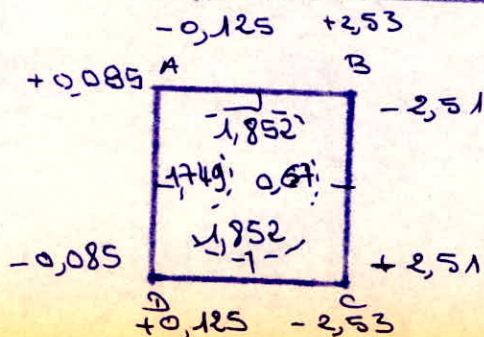 -0,125 +2,53
+0,085 A B
-2,51
1,852
1,749 0,67
1,852
-0,085 +2,51
D C
+0,125 -2,53